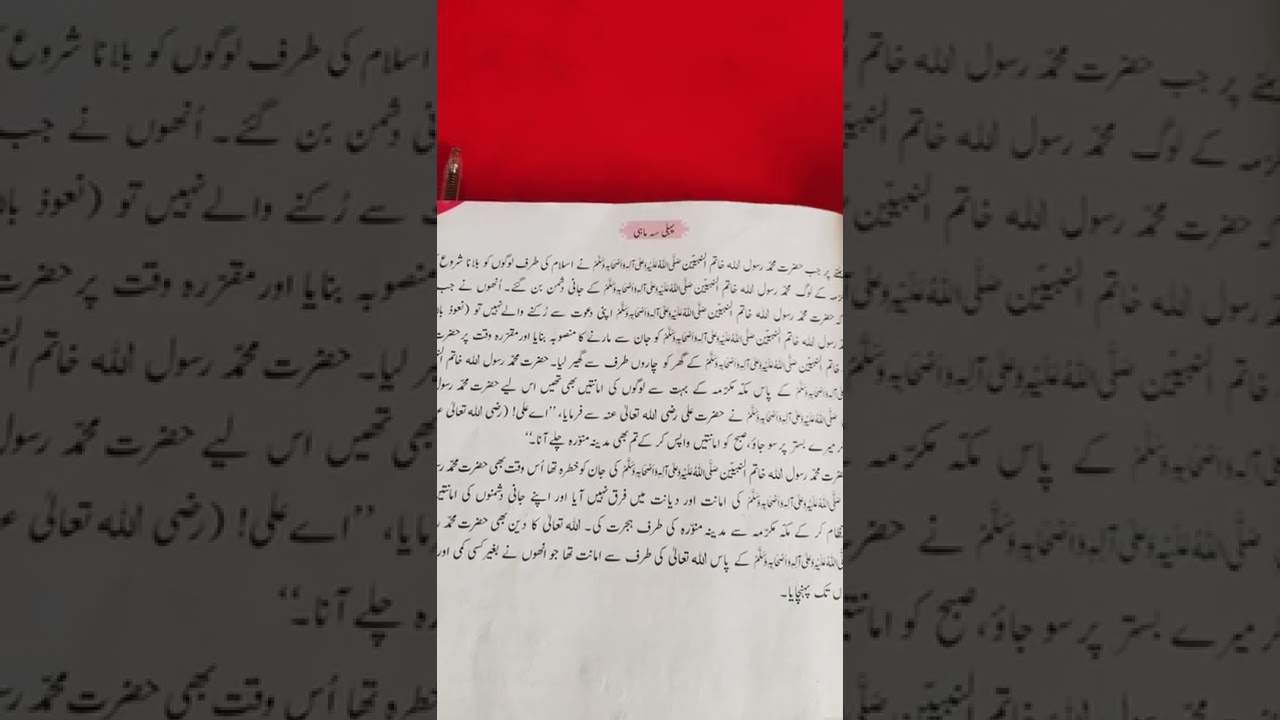 پہلی سہ ماہی
پر جب حضرت محمّد رسول اللہ خاتم النبیّین صلَّی اللہُ عَلَیْہِ وَعَلٰی آلِہٖ وَاَصْحَابِہٖ وَسَلَّمَ نے اسلام کی طرف لوگوں کو بلانا شروع
کے لوگ محمّد رسول اللہ خاتم النبیّین صلَّی اللہُ عَلَیْہِ وَعَلٰی آلِہٖ وَاَصْحَابِہٖ وَسَلَّمَ کے جانی دشمن بن گئے۔ اُنھوں نے جب
حضرت محمّد رسول اللہ خاتم النبیّین صلَّی اللہُ عَلَیْہِ وَعَلٰی آلِہٖ وَاَصْحَابِہٖ وَسَلَّمَ اپنی دعوت سے رُکنے والے نہیں تو (نعوذ
رسول اللہ خاتم النبیّین صلَّی اللہُ عَلَیْہِ وَعَلٰی آلِہٖ وَاَصْحَابِہٖ وَسَلَّمَ کو جان سے مارنے کا منصوبہ بنایا اور مقرّرہ وقت پر حضرت
خاتم النبیّین صلَّی اللہُ عَلَیْہِ وَعَلٰی آلِہٖ وَاَصْحَابِہٖ وَسَلَّمَ کے گھر کو چاروں طرف سے گھیر لیا۔ حضرت محمّد رسول اللہ خاتم
صلَّی اللہُ عَلَیْہِ وَعَلٰی آلِہٖ وَاَصْحَابِہٖ وَسَلَّمَ کے پاس مکّہ مکرّمہ کے بہت سے لوگوں کی امانتیں بھی تھیں اس لیے حضرت محمّد رسول
صلَّی اللہُ عَلَیْہِ وَعَلٰی آلِہٖ وَاَصْحَابِہٖ وَسَلَّمَ نے حضرت علی رضی اللہ تعالیٰ عنہ سے فرمایا، ’’اے علی! (رضی اللہ تعالیٰ
میرے بستر پر سو جاؤ، صبح کو امانتیں واپس کر کے تم بھی مدینہ منوّرہ چلے آنا۔‘‘
حضرت محمّد رسول اللہ خاتم النبیّین صلَّی اللہُ عَلَیْہِ وَعَلٰی آلِہٖ وَاَصْحَابِہٖ وَسَلَّمَ کی جان کو خطرہ تھا اُس وقت بھی حضرت محمّد
صلَّی اللہُ عَلَیْہِ وَعَلٰی آلِہٖ وَاَصْحَابِہٖ وَسَلَّمَ کی امانت اور دیانت میں فرق نہیں آیا اور اپنے جانی دشمنوں کی امانتیں
کر کے مکّہ مکرّمہ سے مدینہ منوّرہ کی طرف ہجرت کی۔ اللہ تعالیٰ کا دین بھی حضرت محمّد
صلَّی اللہُ عَلَیْہِ وَعَلٰی آلِہٖ وَاَصْحَابِہٖ وَسَلَّمَ کے پاس اللہ تعالیٰ کی طرف سے امانت تھا جو انھوں نے بغیر کسی کمی اور
تک پہنچایا۔